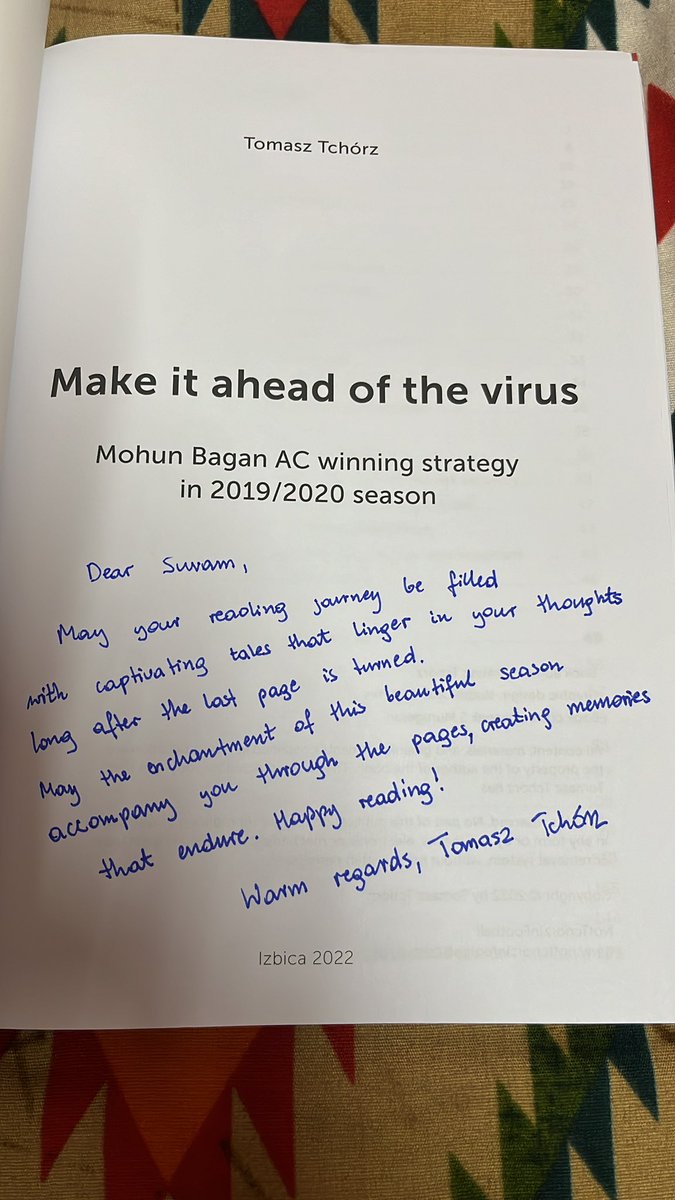 Tomasz Tchórz
Make it ahead of the virus
Mohun Bagan AC winning strategy
in 2019/2020 season
Dear Suvam,
May your reading journey be filled
with captivating tales that linger in your thoughts
long after the last page is turned.
May the enchantment of this beautiful season
accompany you through the pages, creating memories
that endure. Happy reading!
Warm regards, Tomasz Tchórz
Izbica 2022